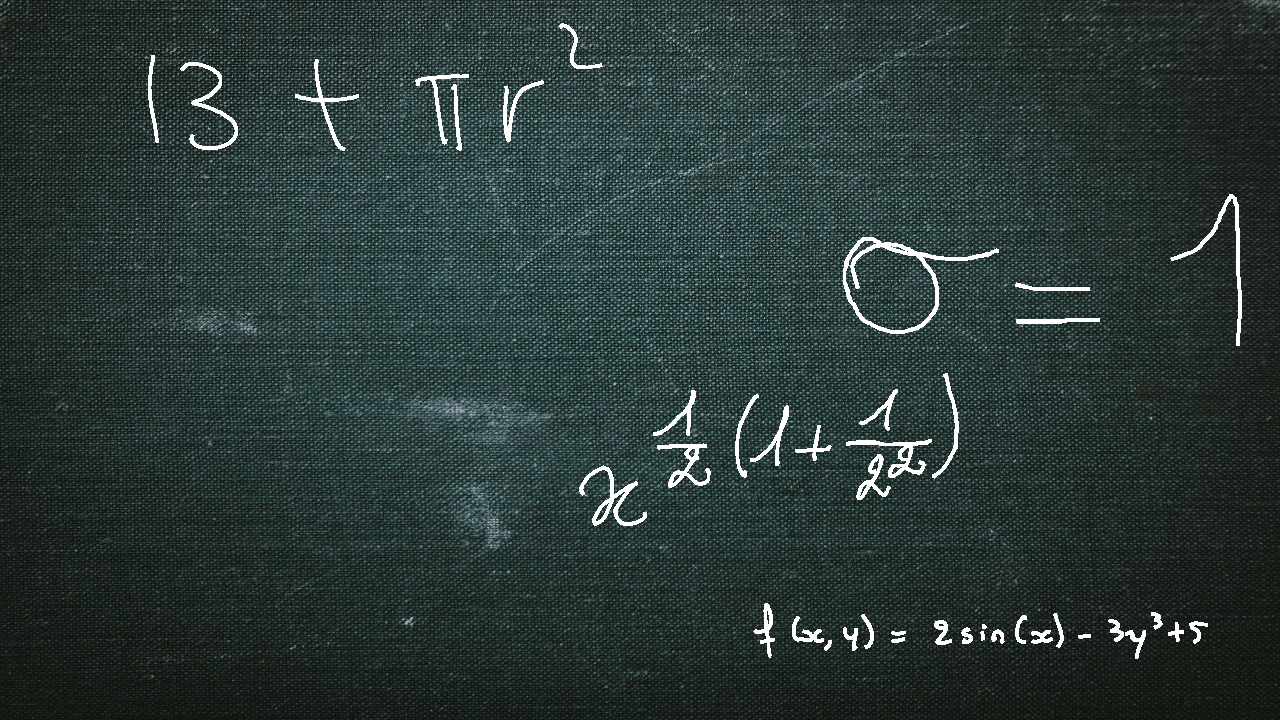 13 + πr²
σ = 1
x^{\frac{1}{2}(1+\frac{1}{2^2})}
f(x,y) = 2sin(x) - 3y³+5